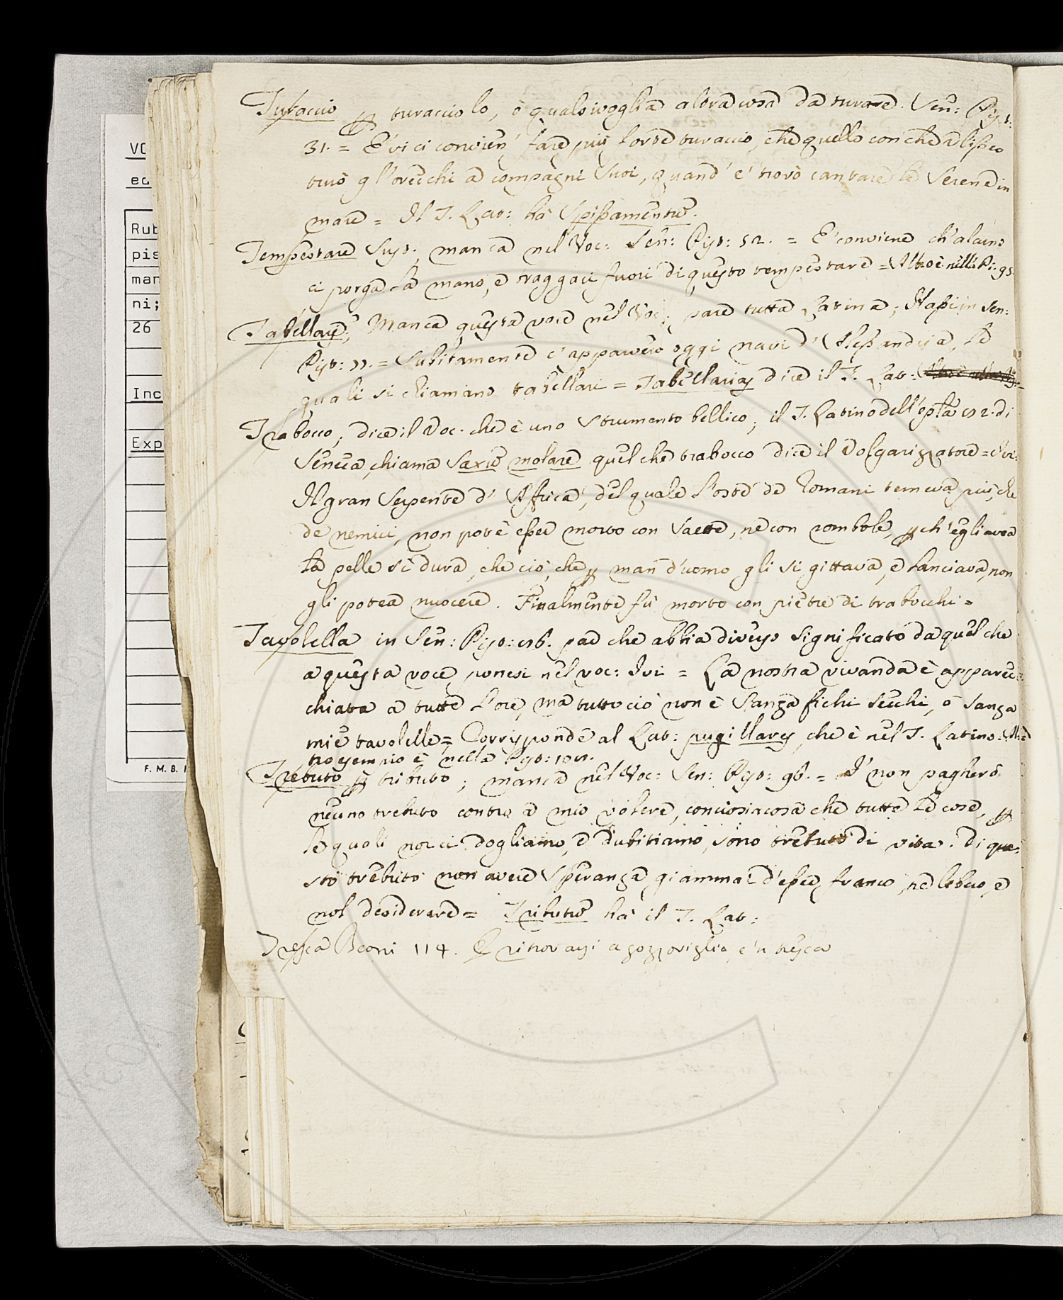 Turaccio p turacciolo, o qualsivoglia altra cosa da turare. Sen: Pist:
31. = E' vi ci convien' fare più forte turaccio, che quello con che Alisso
turò gl'orecchi a compagni suoi, quand' e' trovò cantare le Serene in
mare = Il T. Lat: ha Spissamento.
Tempestare Sust: manca nel Voc: Sen: Pist: 52. = E' conviene ch'alcuno
ci porga la mano, e traggaci fuori di questo tempestare =
Tabellarie; Manca questa voce nel Voc: pare tutta Latina; Hassi in Sen:
Pist: 77. = Subitamente c'apparvero oggi navi d'Alessandria, le
quali si chiamano tabellarie = Tabellarias dice il T. Lat:
Trabocco; dice il Voc. che è uno strumento bellico; il T. Latino dell'epla di
Seneca, chiama Saxum molare quel che trabocco dice il Volgarizzatore =
Il gran Serpente d'Affrica, del quale l'oste de Romani temeva più, che
de nemici, non potè esser morto con Saette, ne con rombole, p ch'egli avea
la pelle si dura, che ciò, che p man d'uomo gli si gittava, e lanciava, non
gli potea nuocere. Finalmente fu morto con pietre di trabocchi =
Tavolella in Sen: Pist: par che abbia diverso significato da quel che
a questa voce ponesi nel voc: Ivi = La nostra vivanda è apparec-
chiata a tutte l'ore, ma tutto ciò non è Sanza fichi secchi, o Sanza
mie tavolelle = Corrisponde al Lat: pugillares, che è nel T. Latino.
tro esempio è nella Pist:
Trebuto p tributo; manca nel Voc: Sen: Pist: 96. = I' non pagherò
neuno trebuto contra a mio volere, conciosiacosa che tutte le cose, p
le quali noi ci dogliamo, e dubitiamo, sono trebuto di vita. Di que-
sto trebuto non avere Speranza giammai d'esser franco, ne
nol desiderare = Tributum ha il T. Lat:
Tresca Beoni 114. E ritrovarsi a gozzoviglia, e'n tresca
VO
Rub
pis
man
ni;
26
Inc
Exp
F. M. B.